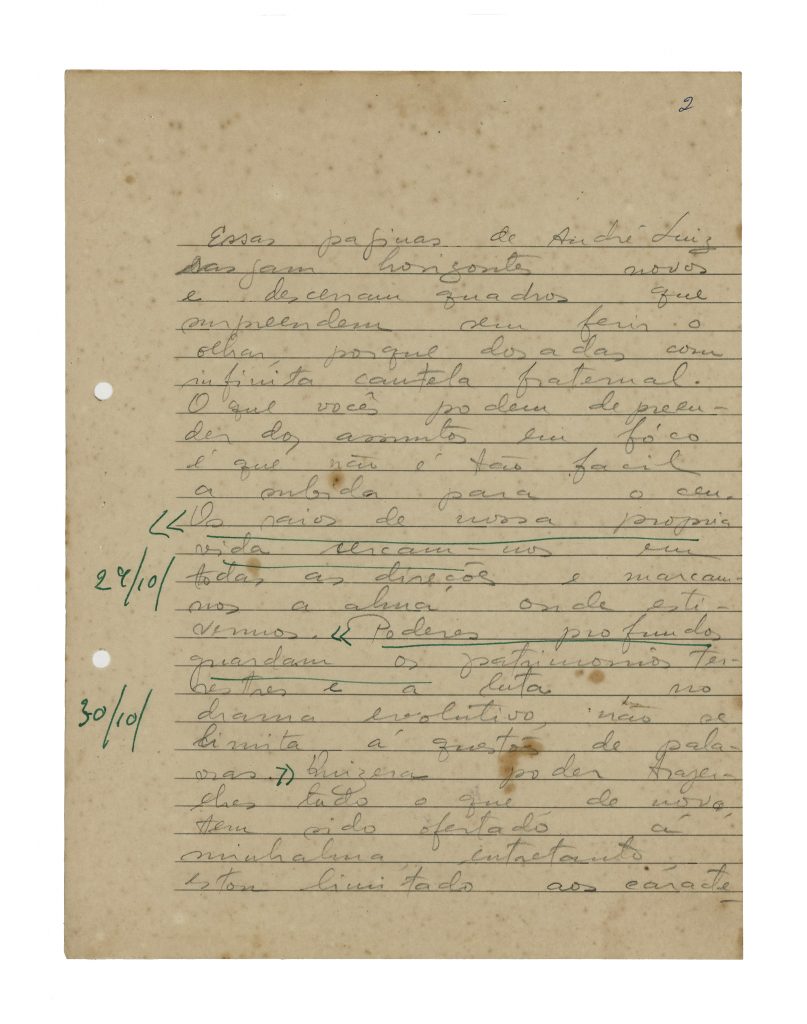 2
Essas paginas de André Luiz
rasgam horizontes novos
e descerram quadros que
surpreendem sem ferir o
olhar, porque dosadas com
infinita cautela fraternal.
O que vocês podem depreen-
der dos assuntos em fóco
é que não é tão facil
a subida para o ceu.
«Os raios de nossa propria
vida cercam-nos em
29/10/
todas as direções e marcam-
nos a alma, onde esti-
vermos. «Poderes profundos
guardam os patrimonios ter-
restres e a luta no
30/10/
drama evolutivo, não se
limita á questões de pala-
vras.» Quizera poder trazer-
lhes tudo o que de novo
tem sido ofertado á
minhalma, entretanto
estou limitado aos caráte-